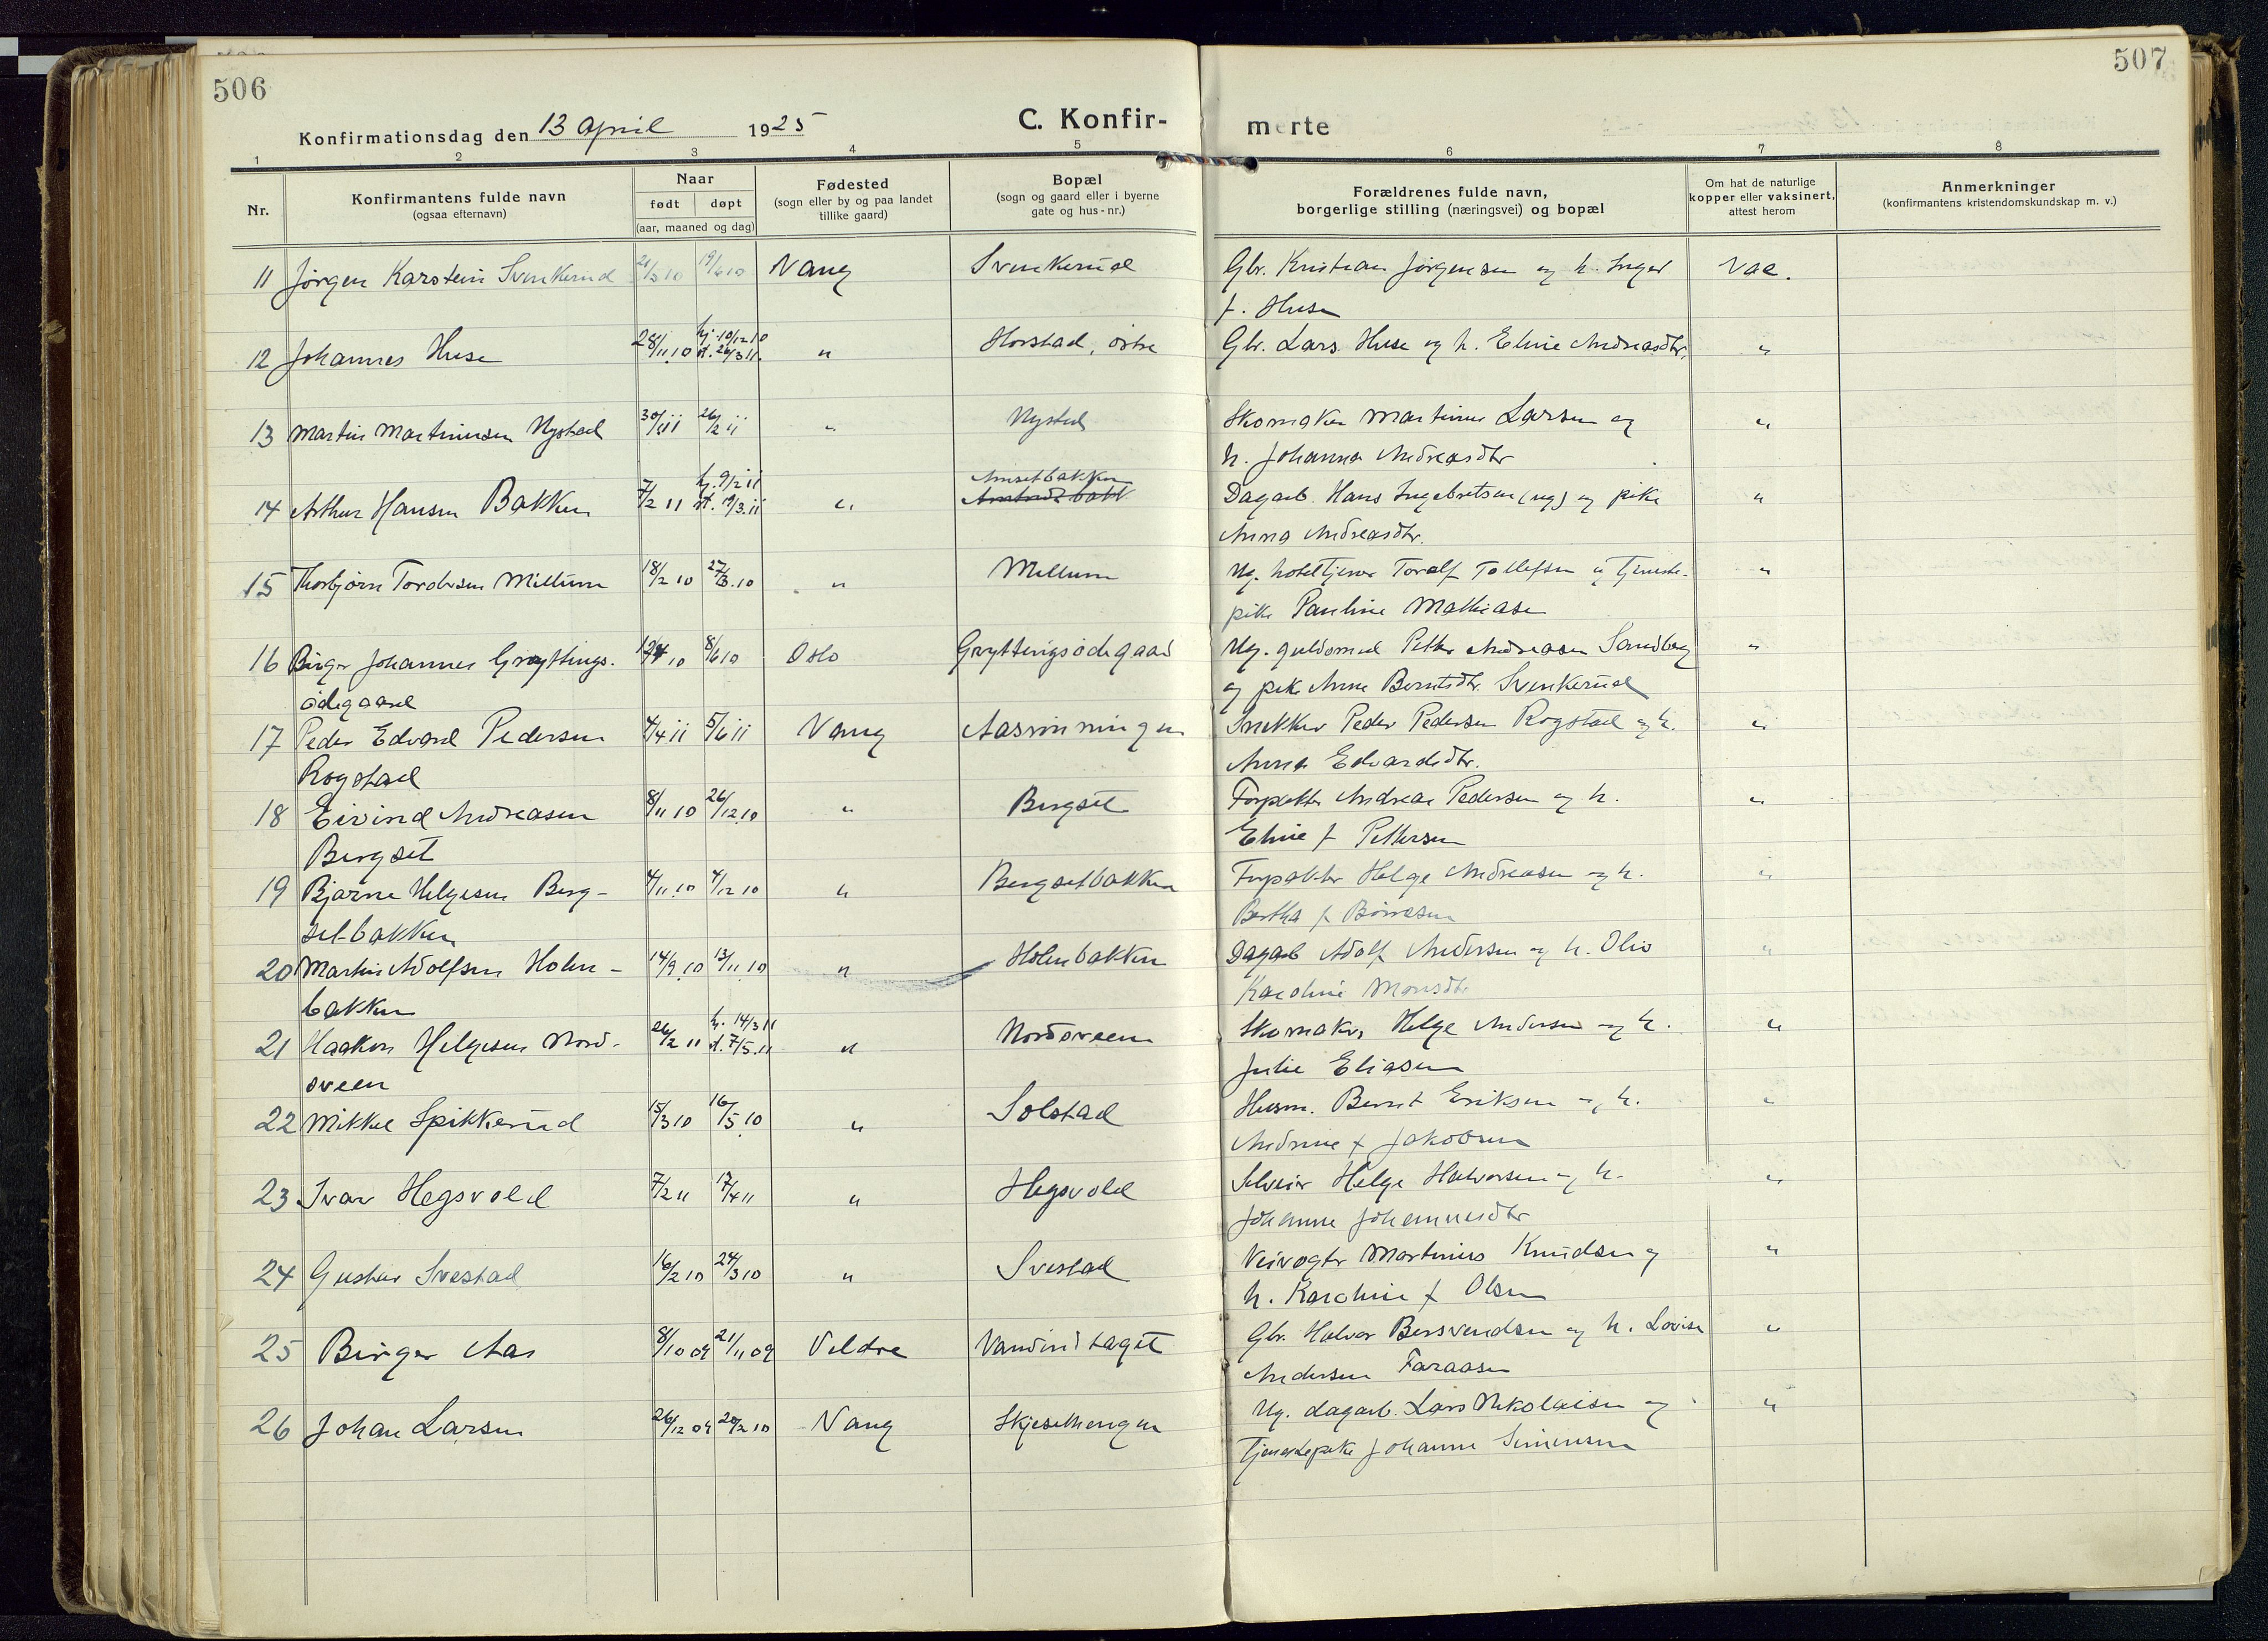 506
507
Konfirmationsdag den 13 April 1925
C. Konfir-
merte
1 2 3 4 5 6 7 8
Nr.
Konfirmantens fulde navn
(ogsaa efternavn)
Naar
født døpt
(aar, maaned og dag)
Fødested
(sogn eller by og paa landet
tillike gaard)
Bopæl
(sogn og gaard eller i byerne
gate og hus-nr.)
Forældrenes fulde navn,
borgerlige stilling (næringsvei) og bopæl
Om hat de naturlige
kopper eller vaksinert,
attest herom
Anmerkninger
(konfirmantens kristendomskundskap m. v.)
11 Jørgen Karstein Svenkerud 21/3 10 19/6 10 Vang Svenkerud Gbr. Kristian Jørgensen og h. Inger Vac.
f. Huse
12 Johannes Huse 28/11.10 hj. 10/12 10 st. 26/3 11 " Horstad, østre Gbr. Lars Huse og h. Eline Andreasdtr. "
13 Martin Martinusen Nystad 30/1 11 26/2 11 " Nystad Skomaker Martinus Larsen og "
h. Johanna Andreasdtr
Amsetbakken
14 Arthur Hansen Bakken 7/2 11 hj. 9/2 11 st. 19/3.11 " Dagarb. Hans Ingebretsen (ug) og pike "
Anna Andreasdtr.
15 Thorbjørn Toralvsen Mellum 18/2 10 27/3.10 " Mellum Ug. hoteltjener Toralf Tollefsen og tjeneste- "
pike Pauline Mathiasen
16 Birger Johannes Gryttings- 10 8/6 10 Oslo Gryttingsødegaard Ug. guldsmed Petter Andreasen Sandberg "
ødegaard og pike Anne Berntsdtr. Svenkerud
17 Peder Edvard Pedersen 4/4 11 5/6 11 Vang Aasrønningen Snekker Peder Pedersen Rogstad og h. "
Rogstad Anna Edvardsdtr.
18 Eivind Andreasen 8/11 10 26/12 10 " Bergset Forpakter Andreas Pedersen og h. "
Bergset Eline f Pettersen
19 Bjarne Helgesen Berg- 4/11.10 4/12 10 " Bergsetbakken Forpakter Helge Andreasen og h. "
setbakken Bertha f Børresen
20 Martin Adolfsen Holm- 14/9.10 13/11.10 " Holmbakken Dagarb Adolf Andersen og h. Olivo "
bakken Karoline Monsdtr
21 Haakon Helgesen Nord- 26/2 11 hj. 14/3 11 st. 7/5.11 " Nordsveen Skomaker Helge Andersen og h. "
sveen Julie Eliasen
22 Mikkel Spikkerud 15/3 10 16/5.10 " Solstad Husm. Bernt Eriksen og h. "
Andrine f Jakobsen
23 Ivar Hegsvold 7/2 11 17/4 11 " Hegsvold Selveier Helge Halvorsen og h. "
Johanne Johannesdtr
24 Gustav Svestad 16/2 10 24/3 10 " Svestad Veivogter Martinius Knudsen og "
h. Karoline f Olsen
25 Birger Aas 8/10 09 21/11 09 Veldre Vandindtaget Gbr. Halvor Bersvendsen og h. Lovise "
Andersen Faraasen
26 Johan Larsen 26/12 09 20/2 10 Vang Skjeselhengen Ug. dagarb. Lars Nikolaisen og "
tjenestepike Johanne Simensen